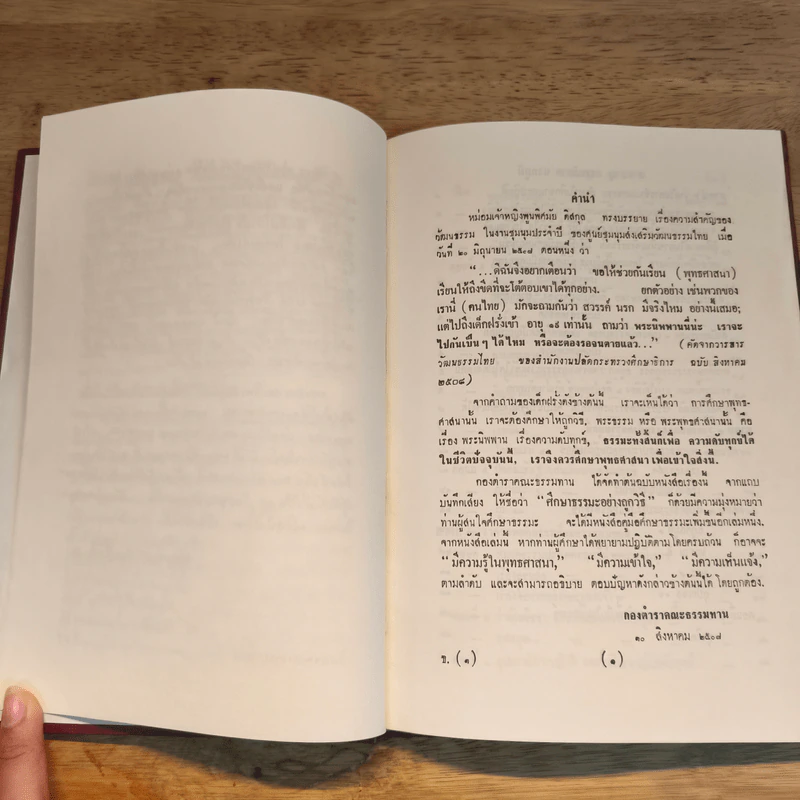 คำนำ
หม่อมเจ้าหญิงพูนพิศมัย ดิสกุล ทรงบรรยาย เรื่องความสำคัญของ
วัฒนธรรม ในงานชุมนุมประจำปี ของศูนย์ชุมนุมส่งเสริมวัฒนธรรมไทย เมื่อ
วันที่ ๒๐ มิถุนายน ๒๕๐๘ ตอนหนึ่ง ว่า
“...ดิฉันจึงอยากเตือนว่า ขอให้ช่วยกันเรียน (พุทธศาสนา)
เรียนให้ถึงขีดที่จะโต้ตอบเขาได้ทุกอย่าง. ยกตัวอย่าง เช่นพวกของ
เรานี่ (คนไทย) มักจะถามกันว่า สวรรค์ นรก มีจริงไหม อย่างนี้เสมอ;
แต่ไปถึงเด็กฝรั่งเข้า อายุ ๑๙ เท่านั้น ถามว่า พระนิพพานนี่น่ะ เราจะ
ไปกันเป็น ๆ ได้ไหม หรือจะต้องรอจนตายแล้ว...” (คัดจากวารสาร
วัฒนธรรมไทย ของสำนักงานปลัดกระทรวงศึกษาธิการ ฉบับ สิงหาคม
๒๕๐๘)
จากคำถามของเด็กฝรั่งดังข้างต้นนี้ เราจะเห็นได้ว่า การศึกษาพุทธ-
ศาสนานั้น เราจะต้องศึกษาให้ถูกวิธี, พระธรรม หรือ พระพุทธศาสนานั้น คือ
เรื่อง พระนิพพาน เรื่องความดับทุกข์, ธรรมะทั้งสิ้นก็เพื่อ ความดับทุกข์ได้
ในชีวิตปัจจุบันนี้. เราจึงควรศึกษาพุทธศาสนา เพื่อเข้าใจสิ่งนี้.
กองตำราคณะธรรมทาน ได้จัดทำต้นฉบับหนังสือเรื่องนี้ จากแถบ
บันทึกเสียง ให้ชื่อว่า “ศึกษาธรรมะอย่างถูกวิธี” ก็ด้วยมีความมุ่งหมายว่า
ท่านผู้สนใจศึกษาธรรมะ จะได้มีหนังสือคู่มือศึกษาธรรมะเพิ่มขึ้นอีกเล่มหนึ่ง.
จากหนังสือเล่มนี้ หากท่านผู้ศึกษาได้พยายามปฏิบัติตามโดยครบถ้วน ก็อาจจะ
“มีความรู้ในพุทธศาสนา,” “มีความเข้าใจ,” “มีความเห็นแจ้ง,”
ตามลำดับ และจะสามารถอธิบาย ตอบปัญหาดังกล่าวข้างต้นนี้ได้ โดยถูกต้อง.
กองตำราคณะธรรมทาน
๑๐ สิงหาคม ๒๕๐๘
ข. (๑) (๑)